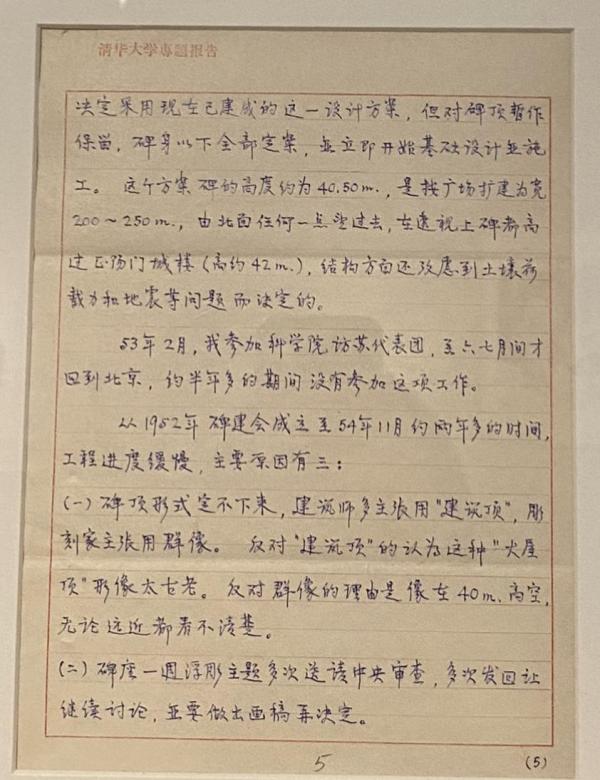 清华大学专题报告
决定采用现在已建成的这一设计方案，但对碑顶暂作
保留，碑身以下全部定案，並立即开始基础设计並施
工。 这个方案碑的高度约为40.50m.，是按广场扩建为宽
200～250m.，由北面任何一点望过去，在透视上碑都高
过正阳门城楼（高约42m.），结构方面还考虑到土壤荷
载力和地震等问题而决定的。
53年2月，我参加科学院访苏代表团，至六七月间才
回到北京，约半年多的期间没有参加这项工作。
从1952年碑建会成立至54年11月约两年多的时间，
工程进度缓慢，主要原因有三：
(一) 碑顶形式定不下来，建筑师多主张用"建筑顶"，彫
刻家主张用群像。 反对"建筑顶"的认为这种"大屋
顶"形像太古老。反对群像的理由是像在40m.高空，
无论远近都看不清楚。
(二) 碑座一週浮彫主题多次送请中央审查，多次发回让
继续讨论，並要做出画稿再决定。
5
(5)